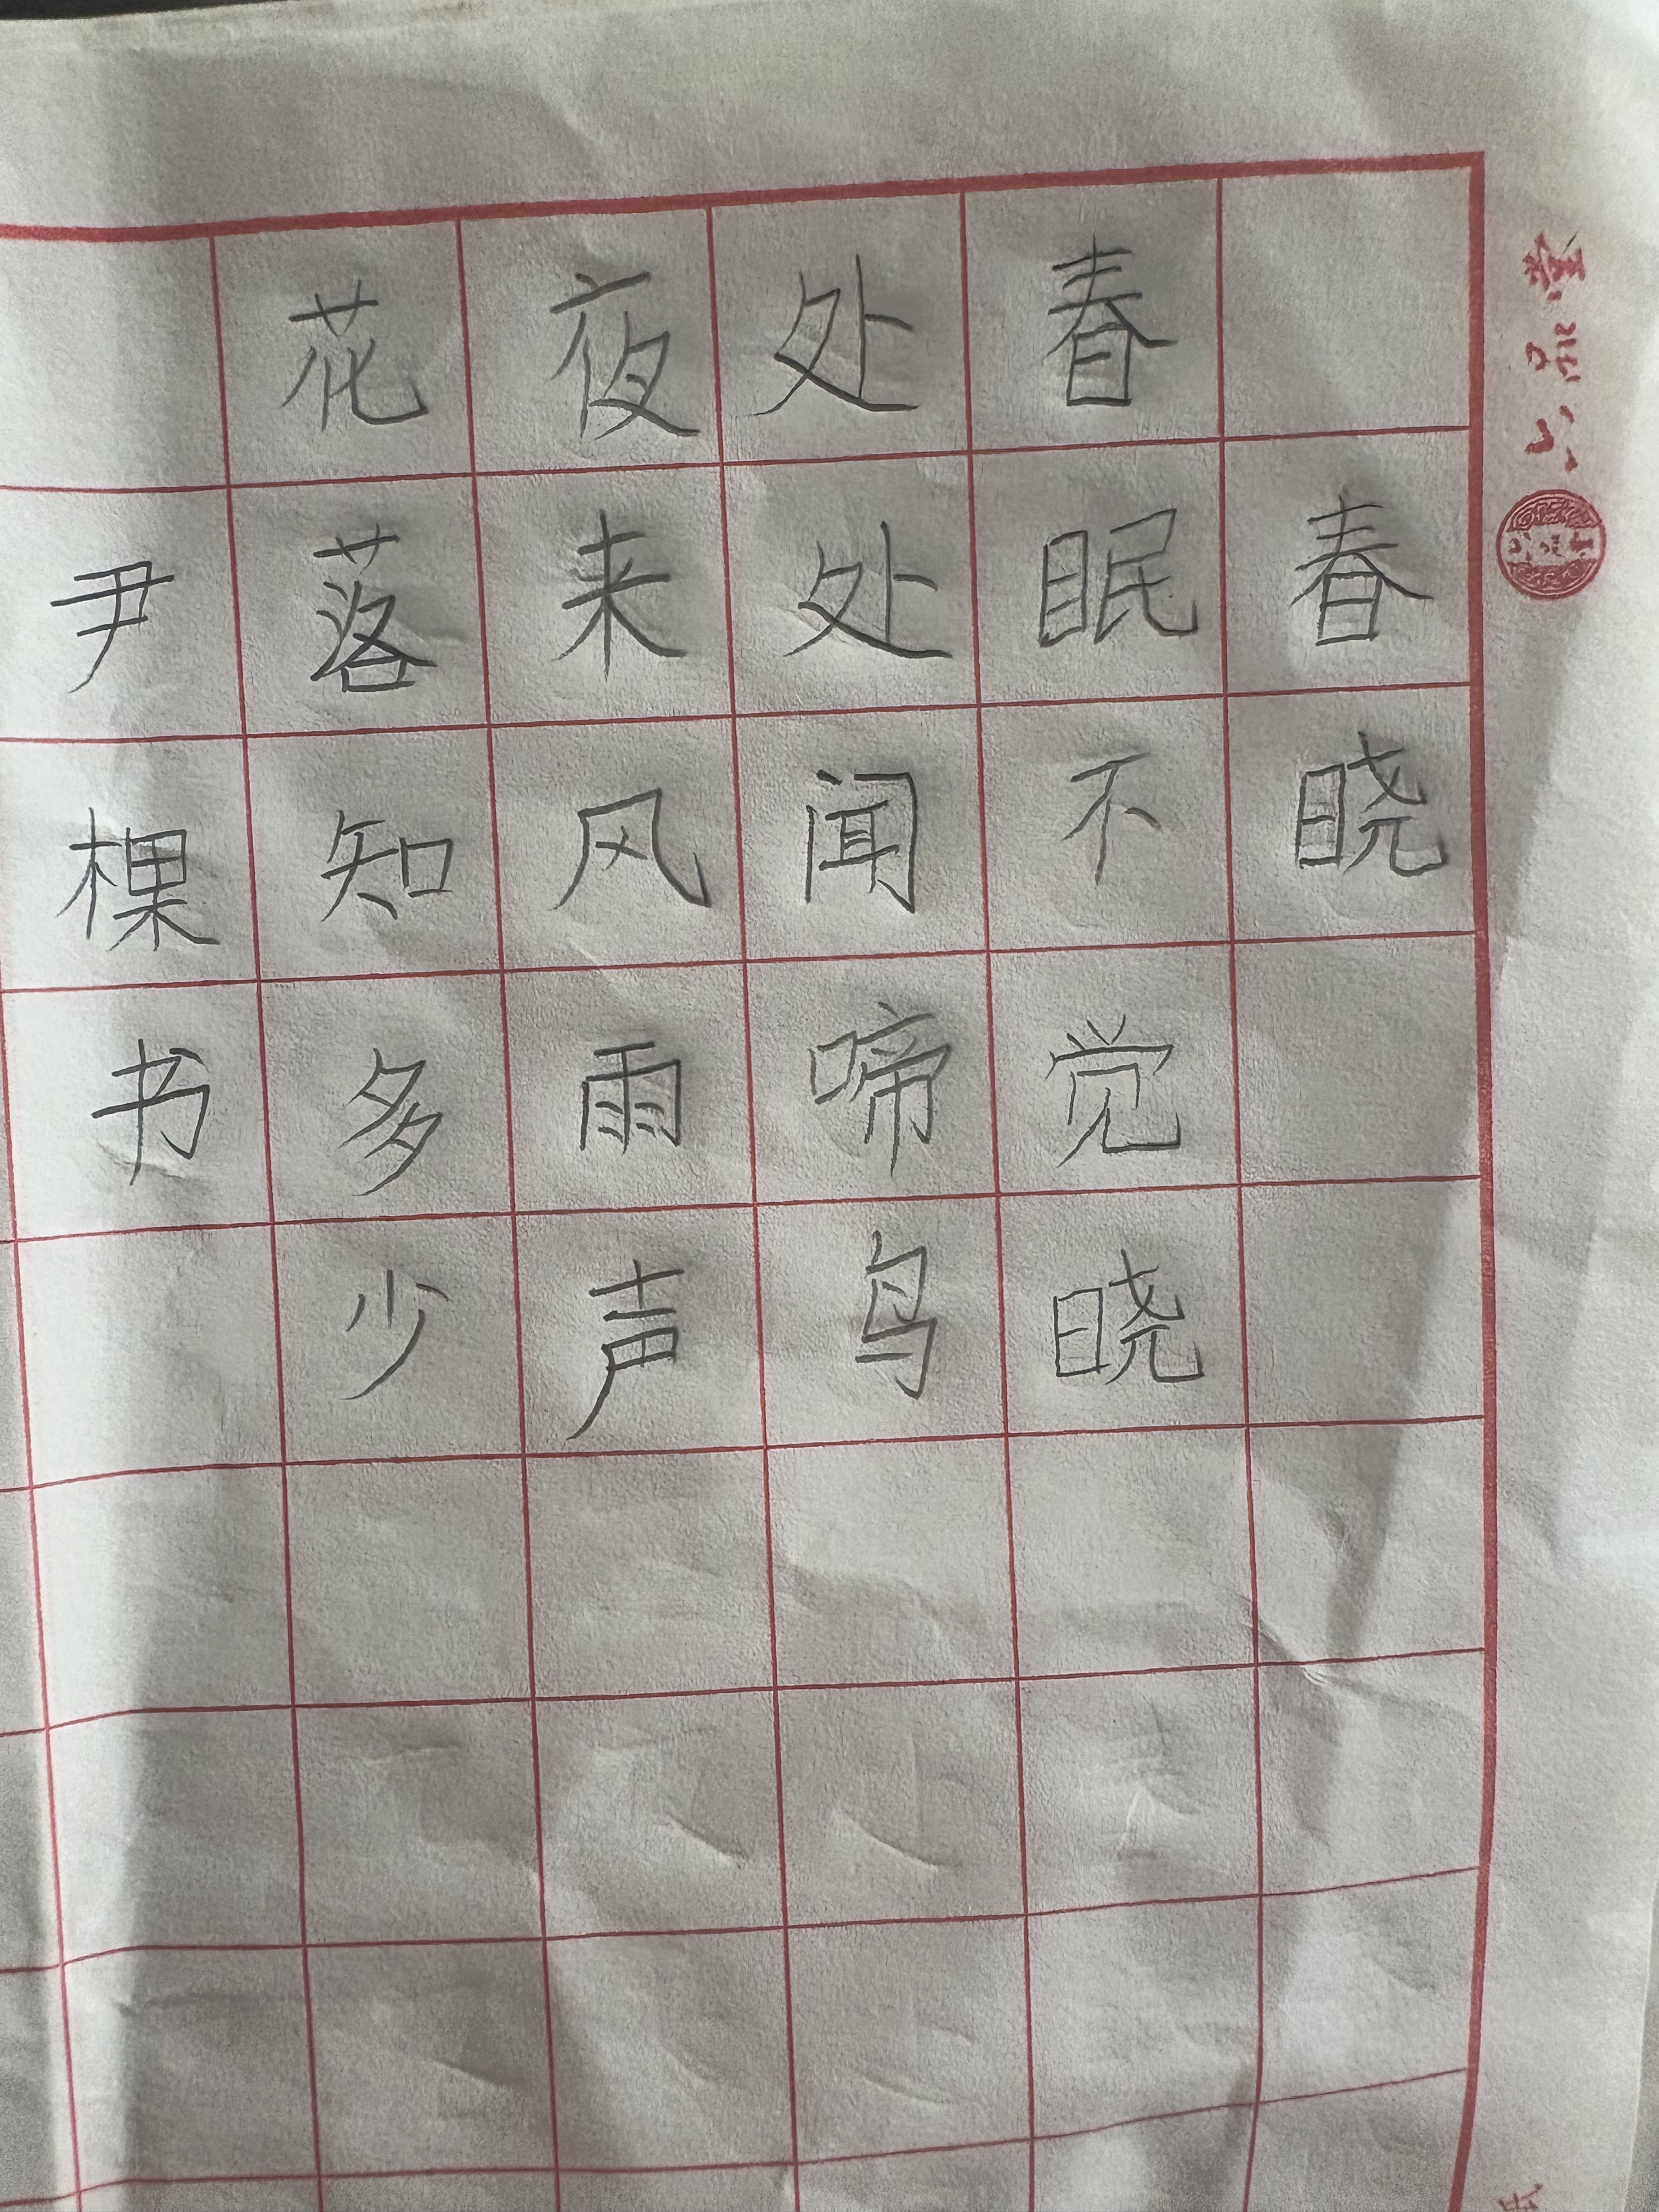 春晓
春眠不觉晓
处处闻啼鸟
夜来风雨声
花落知多少
尹棵书
六品堂